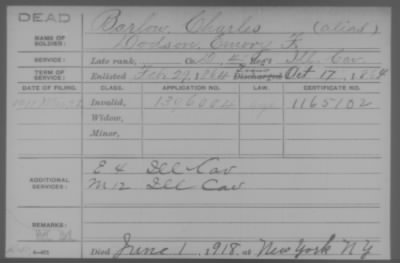 DEAD
Barlow, Charles (alias)
NAME OF SOLDIER:
Dodson, Emory F.
SERVICE: Late rank, Co. Reg't Ill. Cav.
TERM OF SERVICE: Enlisted Feb 29, 1864 Discharged Oct 17, 1864
DATE OF FILING. CLASS. APPLICATION NO. LAW. CERTIFICATE NO.
Invalid, 1396004 1165102
Widow,
Minor,
ADDITIONAL SERVICES:
E 4 Ill Cav
M 12 Ill Cav
REMARKS:
Died June 1, 1918, at New York N.Y.